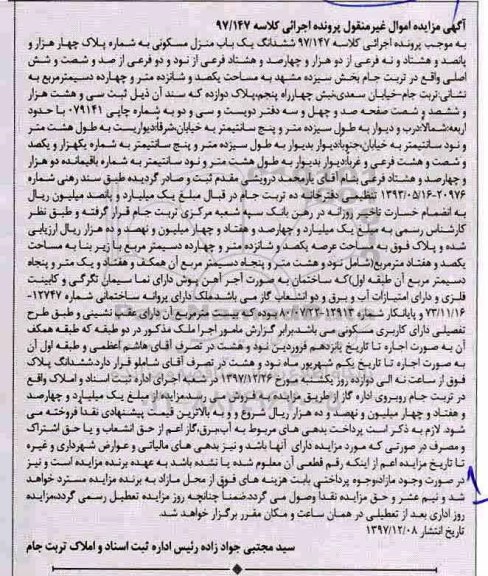 آگهی مزایده اموال غیرمنقول پرونده اجرائی کلاسه ۹۷/۱۴۷
به موجب پرونده اجرائی کلاسه ۹۷/۱۴۷ ششدانگ یک باب منزل مسکونی به شماره پلاک چهار هزار و
پانصد و هشتاد و نه فرعی از دو هزار و چهارصد و هشتاد فرعی از نود و دو فرعی از صد و شصت و شش
اصلی واقع در تربت جام بخش سیزده مشهد به مساحت یکصد و شانزده متر و چهارده دسیمترمربع به
نشانی:تربت جام-خیابان سعدی،نبش چهارراه پنجم،پلاک دوازده که سند آن ذیل ثبت سی و هشت هزار
و ششصد و شصت صفحه صد و چهل و سه دفتر دویست و سی و دو به شماره چاپی ۰۷۹۱۴۱ با حدود
اربعه:شمالا:درب و دیوار به طول سیزده متر و پنج سانتیمتر به خیابان،شرقا:دیواریست به طول هشت متر
و نود سانتیمتر به خیابان،جنوبا:دیوار بدیوار به طول سیزده متر و پنج سانتیمتر به شماره یکهزار و یکصد
و شصت و هشت فرعی و غربا:دیوار بدیوار به طول هشت متر و نود سانتیمتر به شماره باقیمانده دو هزار
و چهارصد و هشتاد فرعی بنام آقای یارمحمد درویشی مقدم ثبت و صادر گردیده طبق سند رهنی شماره
۲۰۹۷۶-۱۳۹۳/۰۵/۱۶ تنظیمی دفترخانه ده تربت جام در قبال مبلغ یک میلیارد و پانصد میلیون ریال
به انضمام خسارت تاخیر روزانه در رهن بانک سپه شعبه مرکزی تربت جام قرار گرفته و طبق نظر
کارشناس رسمی به مبلغ یک میلیارد و چهارصد و هفتاد و چهار میلیون و نهصد و ده هزار ریال ارزیابی
شده و پلاک فوق به مساحت عرصه یکصد و شانزده متر و چهارده دسیمتر مربع با زیر بنا به مساحت
یکصد و هفتاد مترمربع(شامل نود و هشت متر و پنجاه دسیمتر مربع آن همکف و هفتاد و یک متر و پنجاه
دسیمتر مربع آن طبقه اول)که ساختمان به صورت آجر آهن پوش دارای نما سیمان تگرگی و کابینت
فلزی و دارای امتیازات آب و برق و دو انشعاب گاز می باشد،ملک دارای پروانه ساختمانی شماره ۱۲۷۴۷-
۷۳/۱۱/۱۶ و پایانکار شماره ۱۲۹۱۳-۸۰/۰۷/۲۳ بوده که بیست مترمربع آن دارای عقب نشینی و طبق طرح
تفصیلی دارای کاربری مسکونی می باشد.برابر گزارش مامور اجرا ملک مذکور در دو طبقه که طبقه همکف
آن به صورت اجاره تا تاریخ پانزدهم فروردین نود و هشت در تصرف آقای هاشم اعظمی و طبقه اول آن
به صورت اجاره تا تاریخ یکم شهریور ماه نود و هشت در تصرف آقای شاملو قرار دارد،ششدانگ پلاک
فوق از ساعت نه الی دوازده روز یکشنبه مورخ ۱۳۹۷/۱۲/۲۶ در شعبه اجرای اداره ثبت اسناد و املاک واقع
در تربت جام روبروی اداره گاز از طریق مزایده به فروش می رسد.مزایده از مبلغ یک میلیارد و چهارصد
و هفتاد و چهار میلیون و نهصد و ده هزار ریال شروع و و به بالاترین قیمت پیشنهادی نقدا فروخته می
شود. لازم به ذکر است پرداخت بدهی های مربوط به آب،برق،گاز اعم از حق انشعاب و یا حق اشتراک
و مصرف در صورتی که مورد مزایده دارای آنها باشد و نیز بدهی های مالیاتی و عوارض شهرداری و غیره
تا تاریخ مزایده اعم از اینکه رقم قطعی آن معلوم شده یا نشده باشد به عهده برنده مزایده است و نیز
در صورت وجود مازاد،وجوه پرداختی بابت هزینه های فوق از محل مازاد به برنده مزایده مسترد خواهد
شد و نیم عشر و حق مزایده نقدا وصول می گردد.ضمنا چنانچه روز مزایده تعطیل رسمی گردد،مزایده
روز اداری بعد از تعطیلی در همان ساعت و مکان مقرر برگزار خواهد شد.
تاریخ انتشار ۱۳۹۷/۱۲/۰۸
سید مجتبی جواد زاده رئیس اداره ثبت اسناد و املاک تربت جام